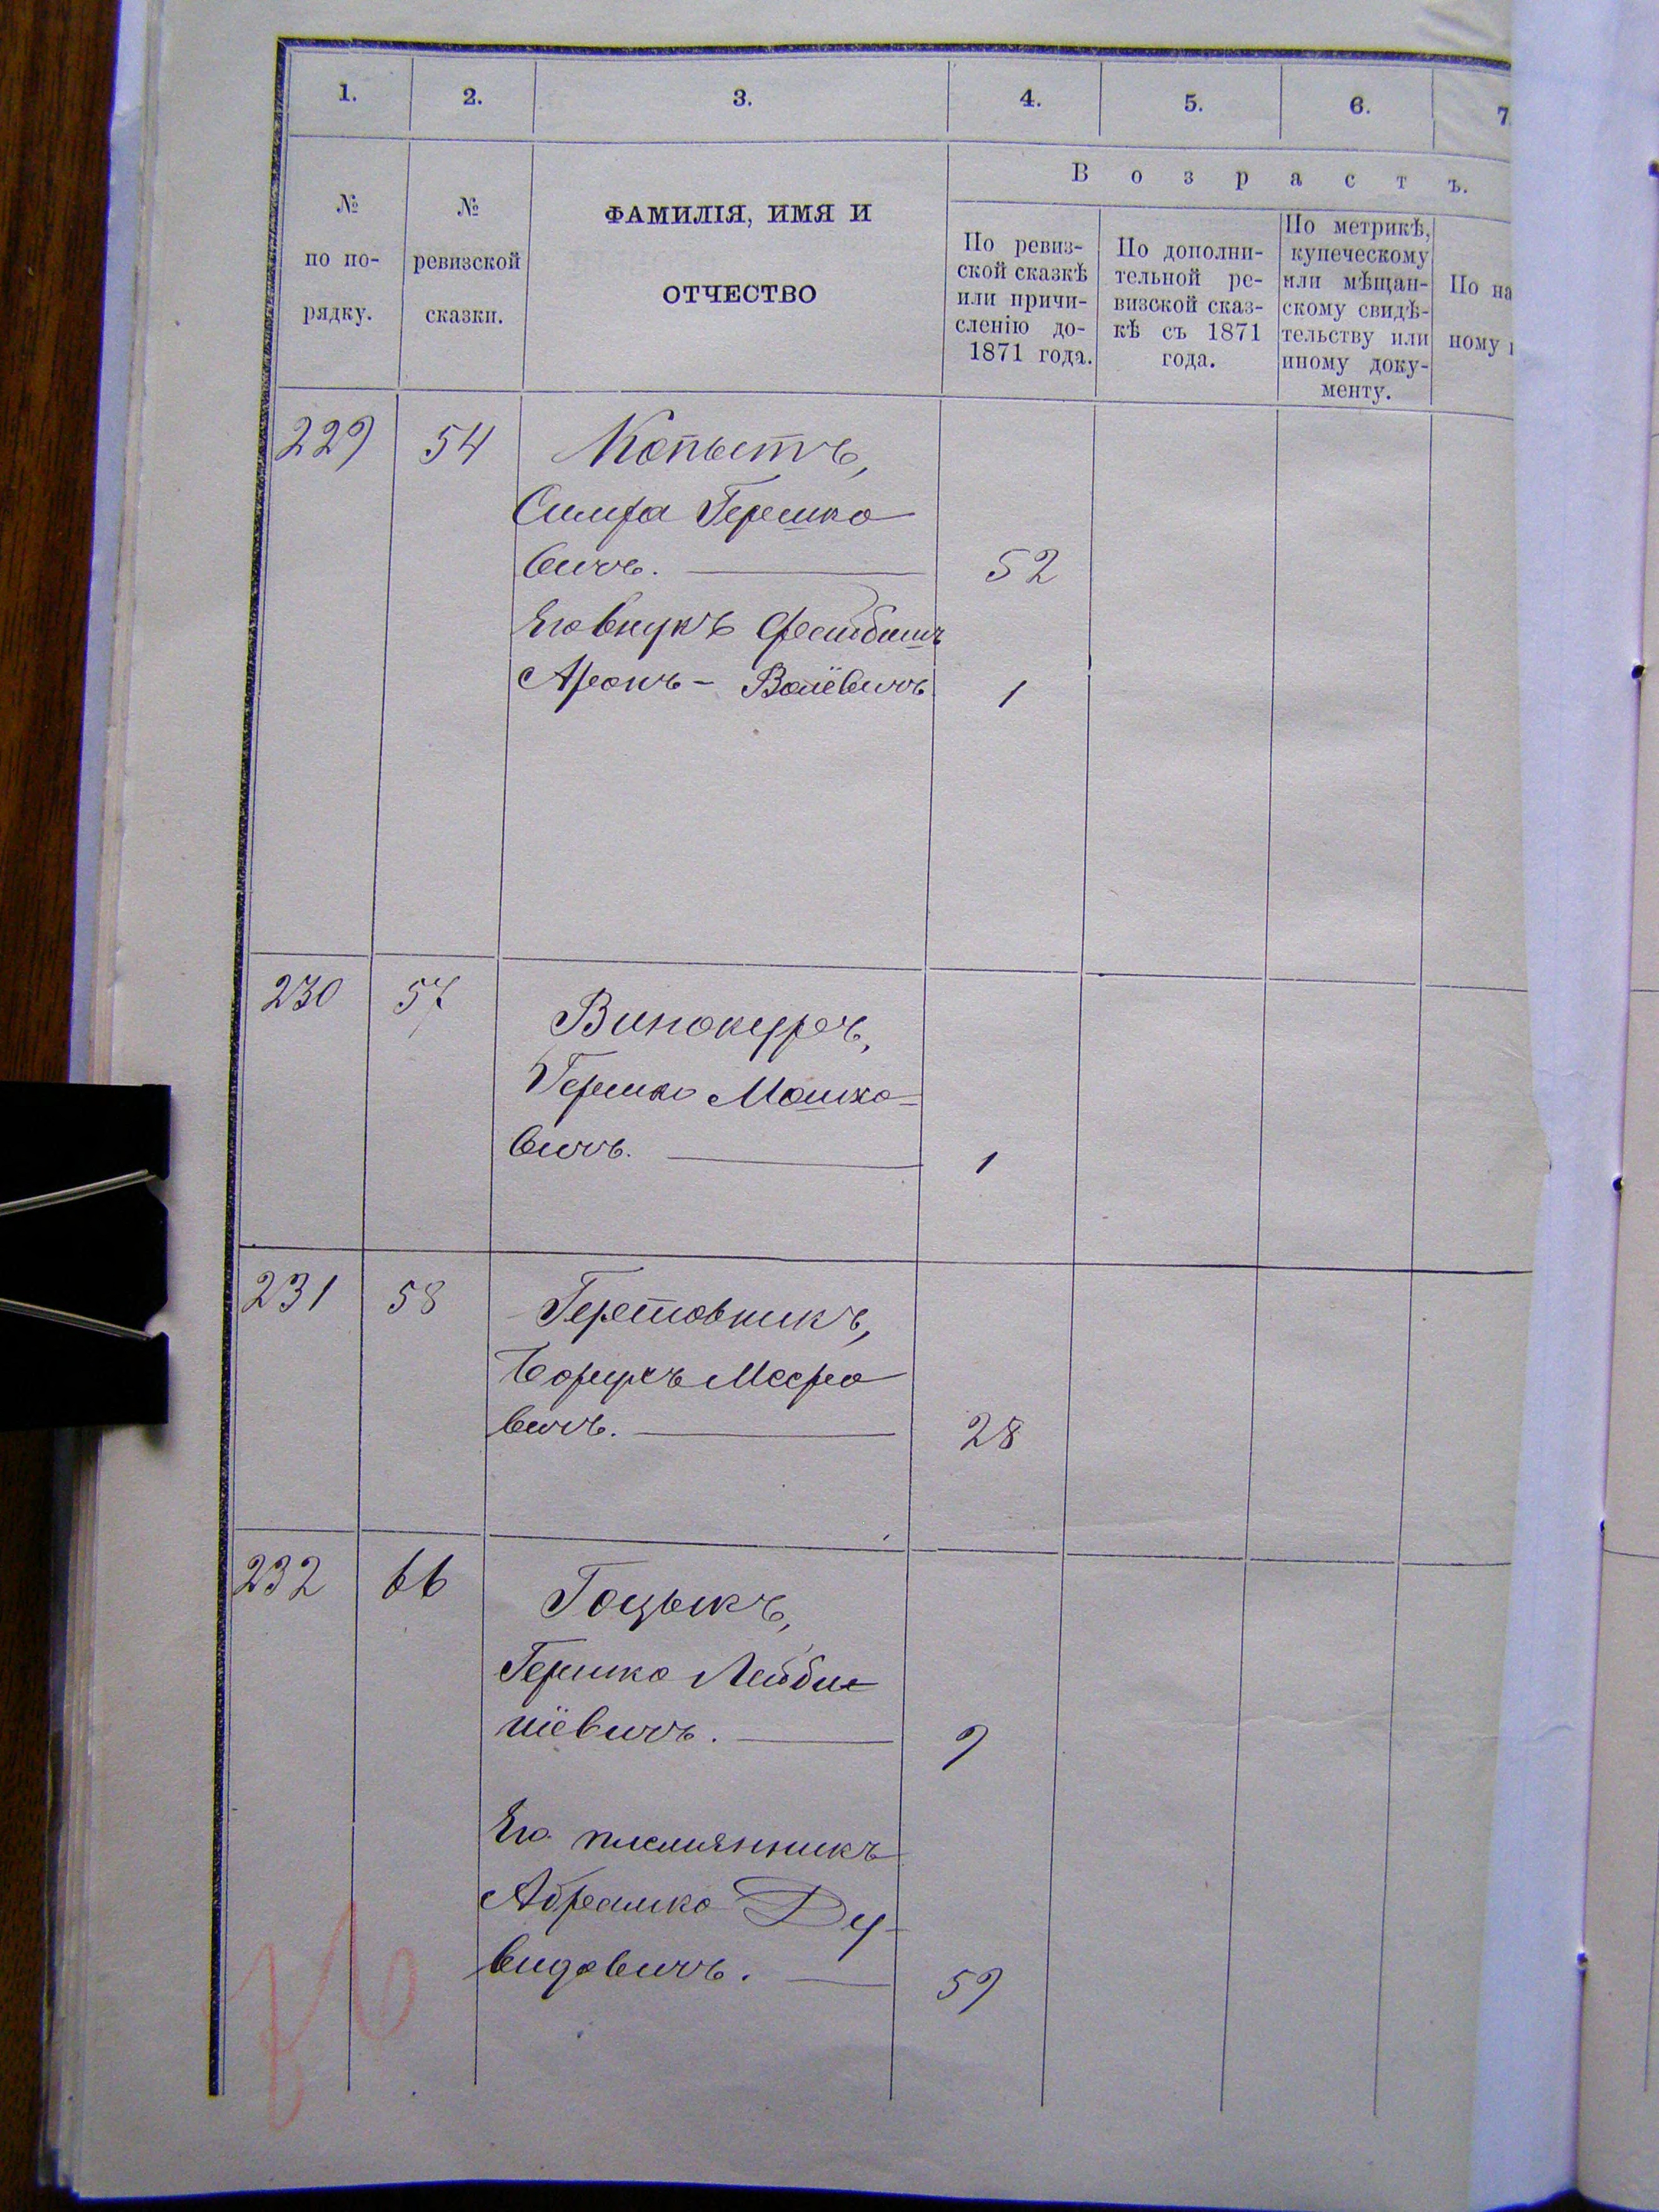 1. 2. 3. 4. 5. 6. 7
№ по по- рядку.
№ ревизской сказки.
ФАМИЛІЯ, ИМЯ И
ОТЧЕСТВО
Возрастъ.
По ревиз-
ской сказкѣ
или причи-
сленію до-
1871 года.
По дополни-
тельной ре-
визской сказ-
кѣ съ 1871
года.
По метрикѣ,
купеческому
или мѣщан-
скому свидѣ-
тельству или
иному доку-
менту.
По на
ному
229 54 Копытъ,
Гершко
вичъ. 52
Его внукъ Фейбишъ
Аронъ - Волёвичъ 1
230 57 Винокуръ,
Гершко Мошко-
вичъ. 1
231 58
Борухъ Мееро
вичъ. 28
232 66 Гоцыкъ,
Гершко Лейби
шёвичъ. 9
Его племянникъ
Абрамко Ду-
видовичъ. 59